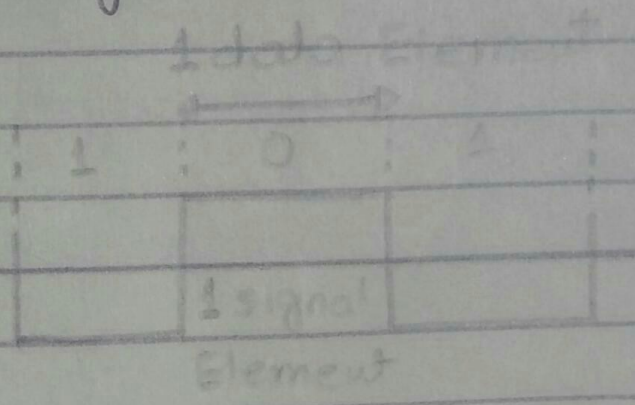 1 data Element
1 0 1
1 signal
Element